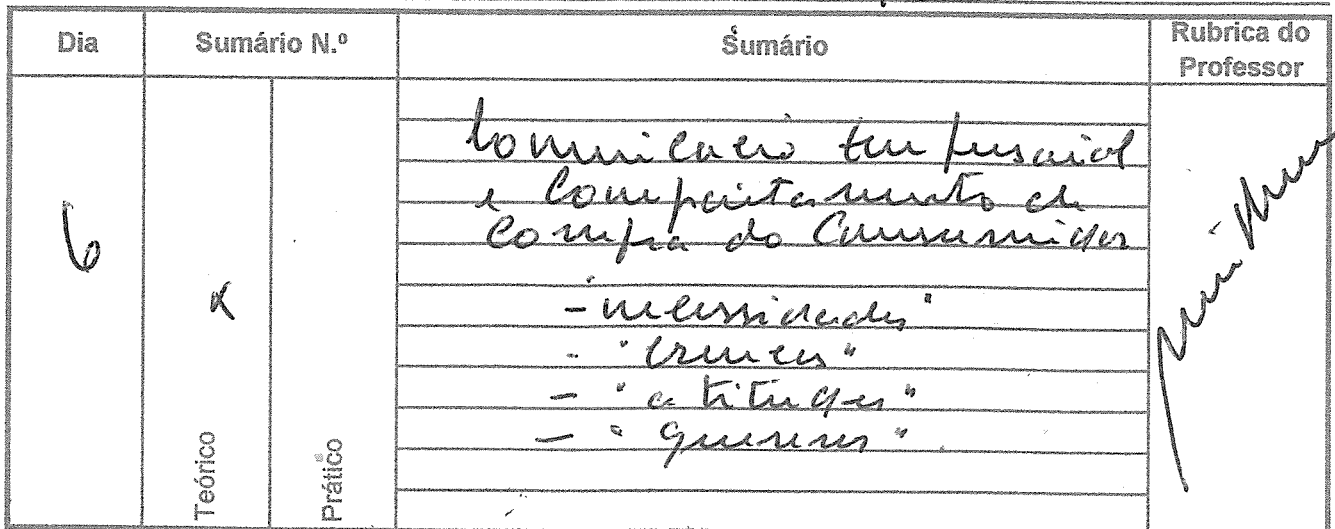 Dia
Sumário N.º
Sumário
Rubrica do
Professor
6
x
Teórico
Prático
Comunicação Empresarial
e Comportamento de
Compra do Consumidor
- necessidades"
- "crenças"
- "atitudes"